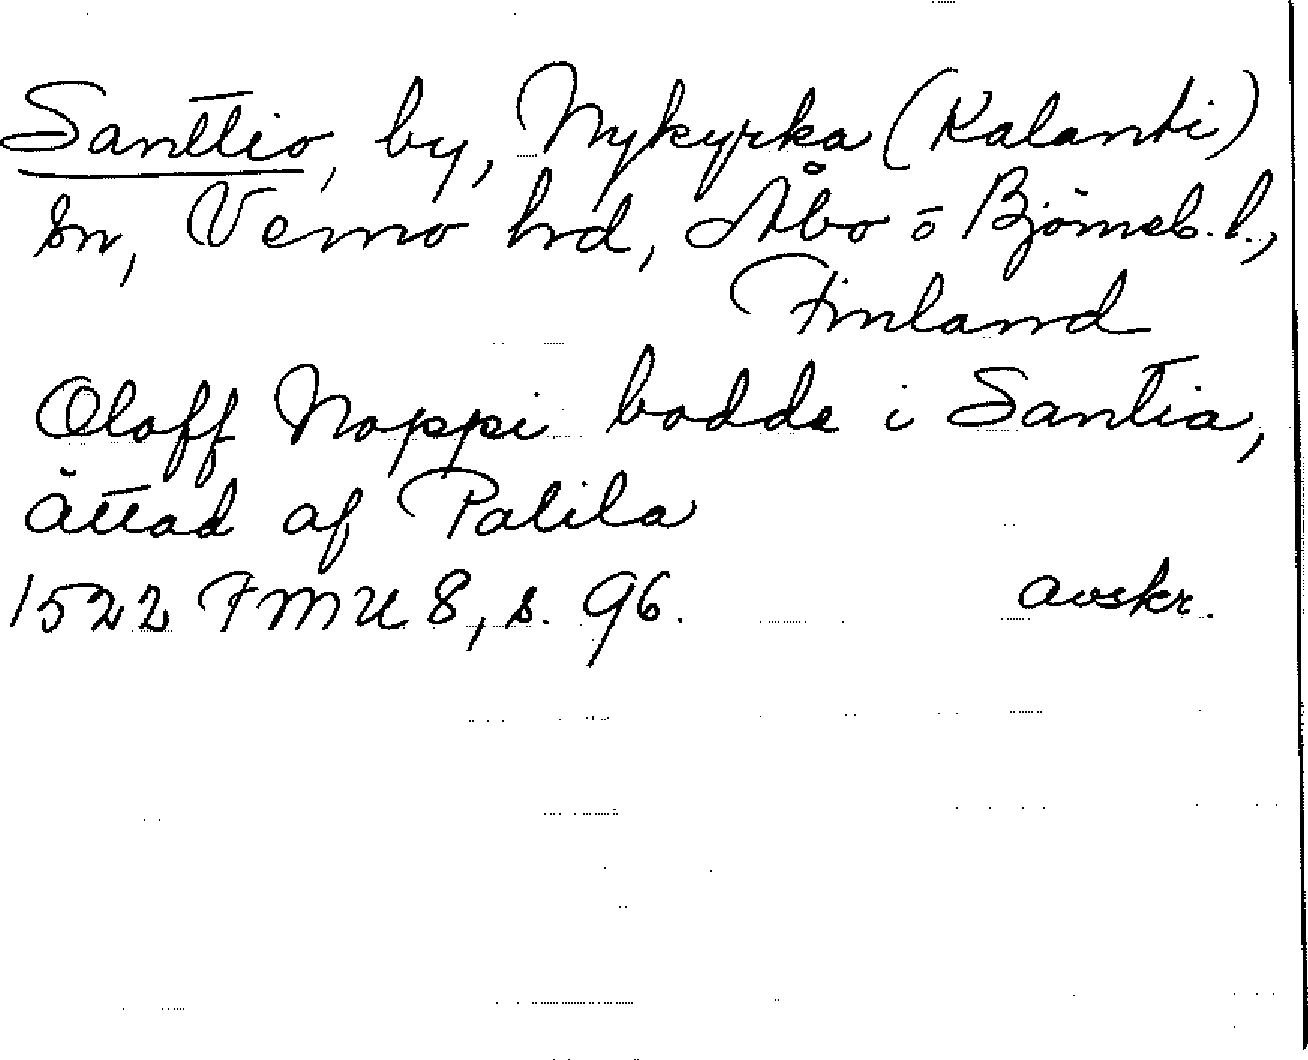 Santtio, by, Nykyrka (Kalanti)
sn, Vemo hrd, Åbo o Björneb. l.,
Finland
Oloff Noppi bodde i Santia,
ättad af Palila
1522 FMU 8, s. 96. avskr.